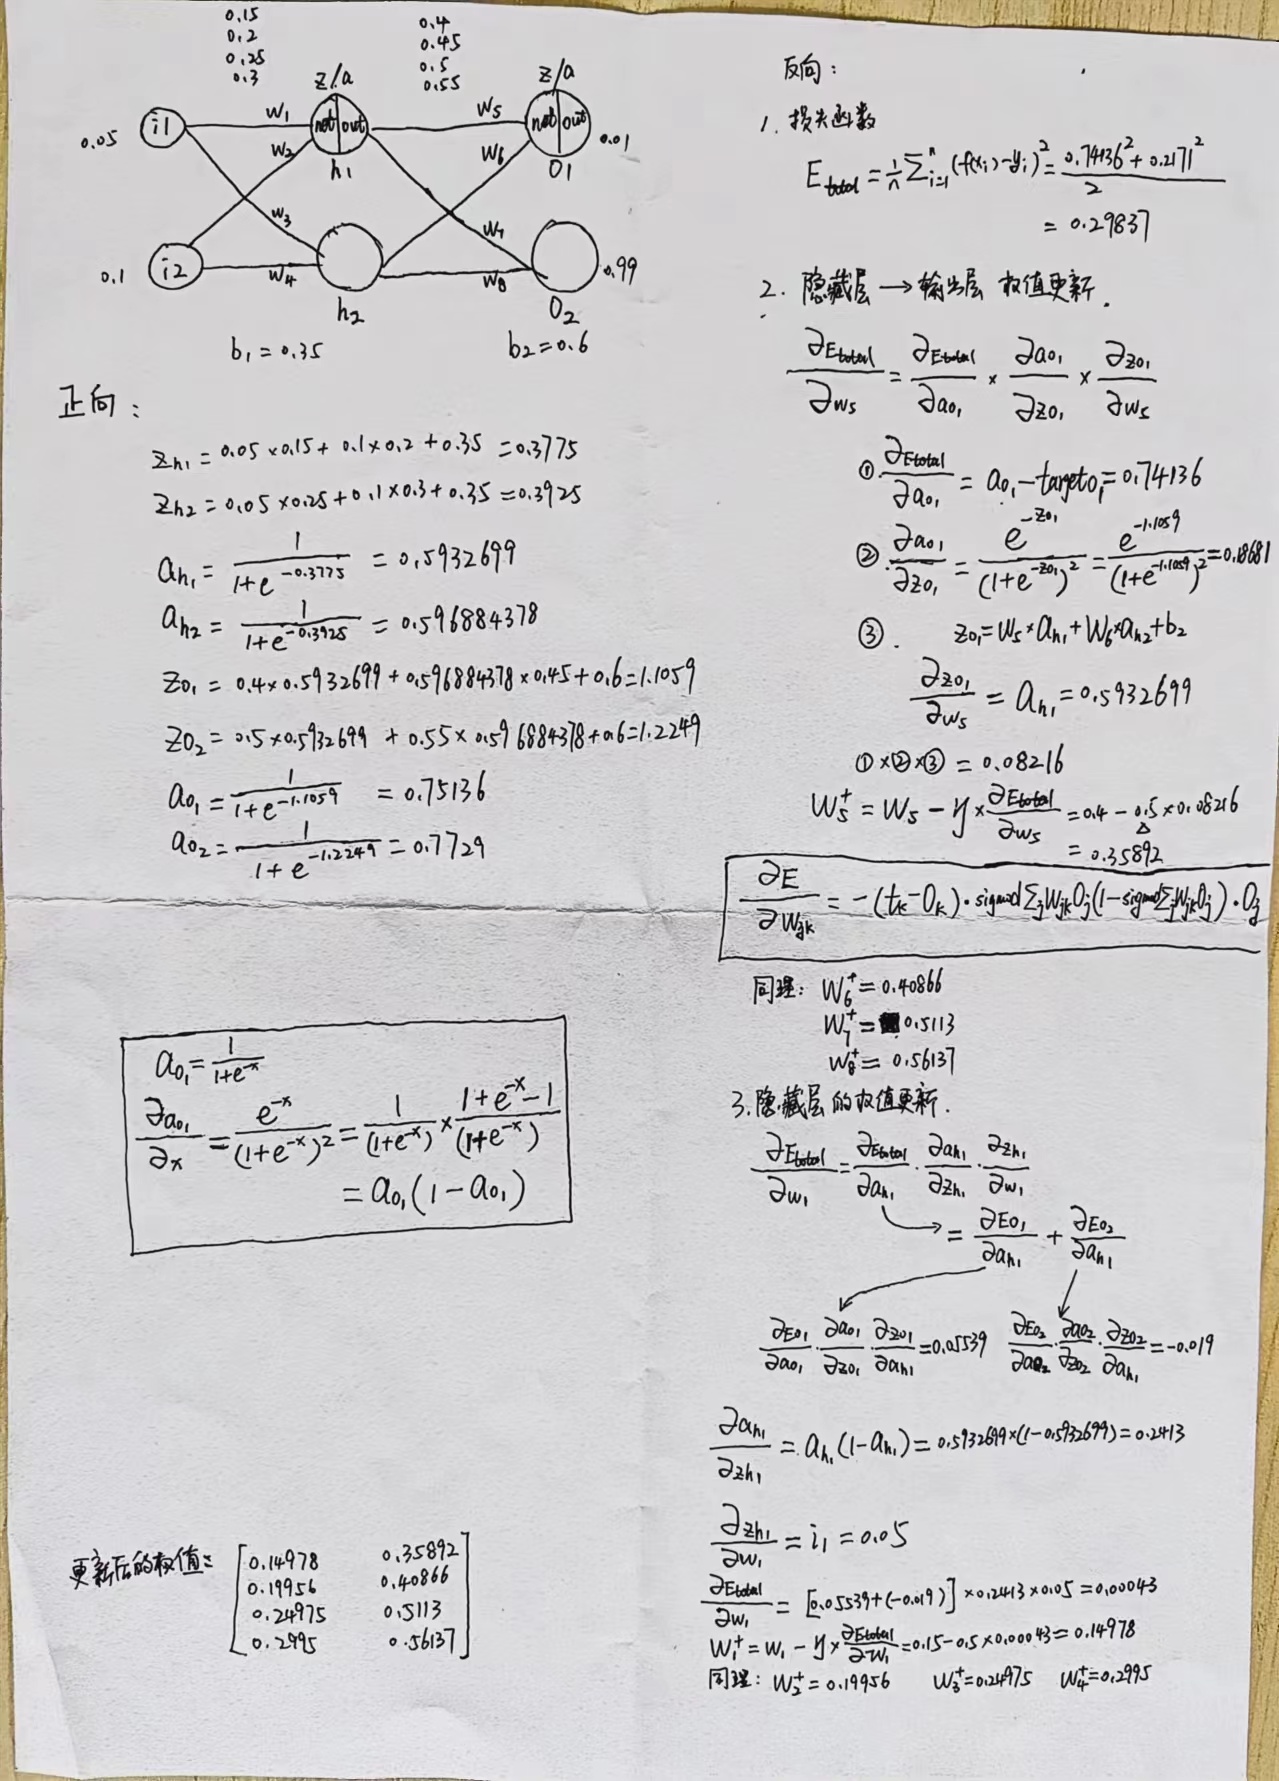 0.15
0.2
0.25
0.3
0.4
0.45
0.5
0.55
z/a
z/a
0.05 i1 w1 net out w5 net out 0.01
w2 h1 w6 O1
w3 w7
0.1 i2 w4 h2 w8 O2 0.99
b₁=0.35 b₂=0.6
正向:
Zh₁ = 0.05×0.15+0.1×0.2+0.35=0.3775
Zh2=0.05×0.25+0.1×0.3+0.35=0.3925
ah₁ = 1/(1+e^-0.3775) = 0.5932699
ah2 = 1/(1+e^-0.3925) = 0.596884378
Zo₁ = 0.4×0.5932699+0.596884378×0.45+0.6=1.1059
Zo₂ = 0.5×0.5932699+0.55×0.596884378+0.6=1.2249
ao₁ = 1/(1+e^-1.1059) = 0.75136
ao2 = 1/(1+e^-1.2249) = 0.7729
ao₁ = 1/(1+e^-x)
∂ao₁/∂x = e^-x/(1+e^-x)² = 1/(1+e^-x) × (1+e^-x-1)/(1+e^-x)
= ao₁(1-ao₁)
更新后的权值:
[0.14978 0.35892
0.19956 0.40866
0.24975 0.5113
0.2995 0.56137]
反向:
1. 损失函数
Etotal = 1/n Σⁿi=1 (f(xi)-yi)² = (0.74136²+0.2171²)/2
= 0.29837
2. 隐藏层→输出层 权值更新.
∂Etotal/∂w5 = ∂Etotal/∂ao₁ × ∂ao₁/∂zo₁ × ∂zo₁/∂w5
① ∂Etotal/∂ao₁ = ao₁-targeto₁=0.74136
② ∂ao₁/∂zo₁ = e^-zo₁/(1+e^-zo₁)² = e^-1.1059/(1+e^-1.1059)² = 0.18681
③. zo₁=w5×ah₁+w6×ah2+b2
∂zo₁/∂w5 = ah₁ = 0.5932699
①×②×③ = 0.08216
w5⁺ = w5 - η×∂Etotal/∂w5 = 0.4-0.5×0.08216
= 0.35892
∂E/∂Wjk = -(tk-Ok)·sigmodΣjWjkOj(1-sigmodΣjWjkOj)·Oj
同理: w6⁺ = 0.40866
w7⁺ = 0.5113
w8⁺ = 0.56137
3. 隐藏层的权值更新.
∂Etotal/∂w₁ = ∂Etotal/∂ah₁ · ∂ah₁/∂zh₁ · ∂zh₁/∂w₁
→ = ∂Eo₁/∂ah₁ + ∂Eo₂/∂ah₁
∂Eo₁/∂ao₁ · ∂ao₁/∂zo₁ · ∂zo₁/∂ah₁ = 0.05539 ∂Eo₂/∂ao₂ · ∂ao₂/∂zo₂ · ∂zo₂/∂ah₁ = -0.019
∂ah₁/∂zh₁ = ah₁(1-ah₁) = 0.5932699×(1-0.5932699) = 0.2413
∂zh₁/∂w₁ = i₁ = 0.05
∂Etotal/∂w₁ = [0.05539+(-0.019)]×0.2413×0.05=0.00043
w₁⁺ = w₁ - η×∂Etotal/∂w₁ = 0.15-0.5×0.00043=0.14978
同理: w2⁺ = 0.19956 w3⁺=0.24975 w4⁺=0.2995